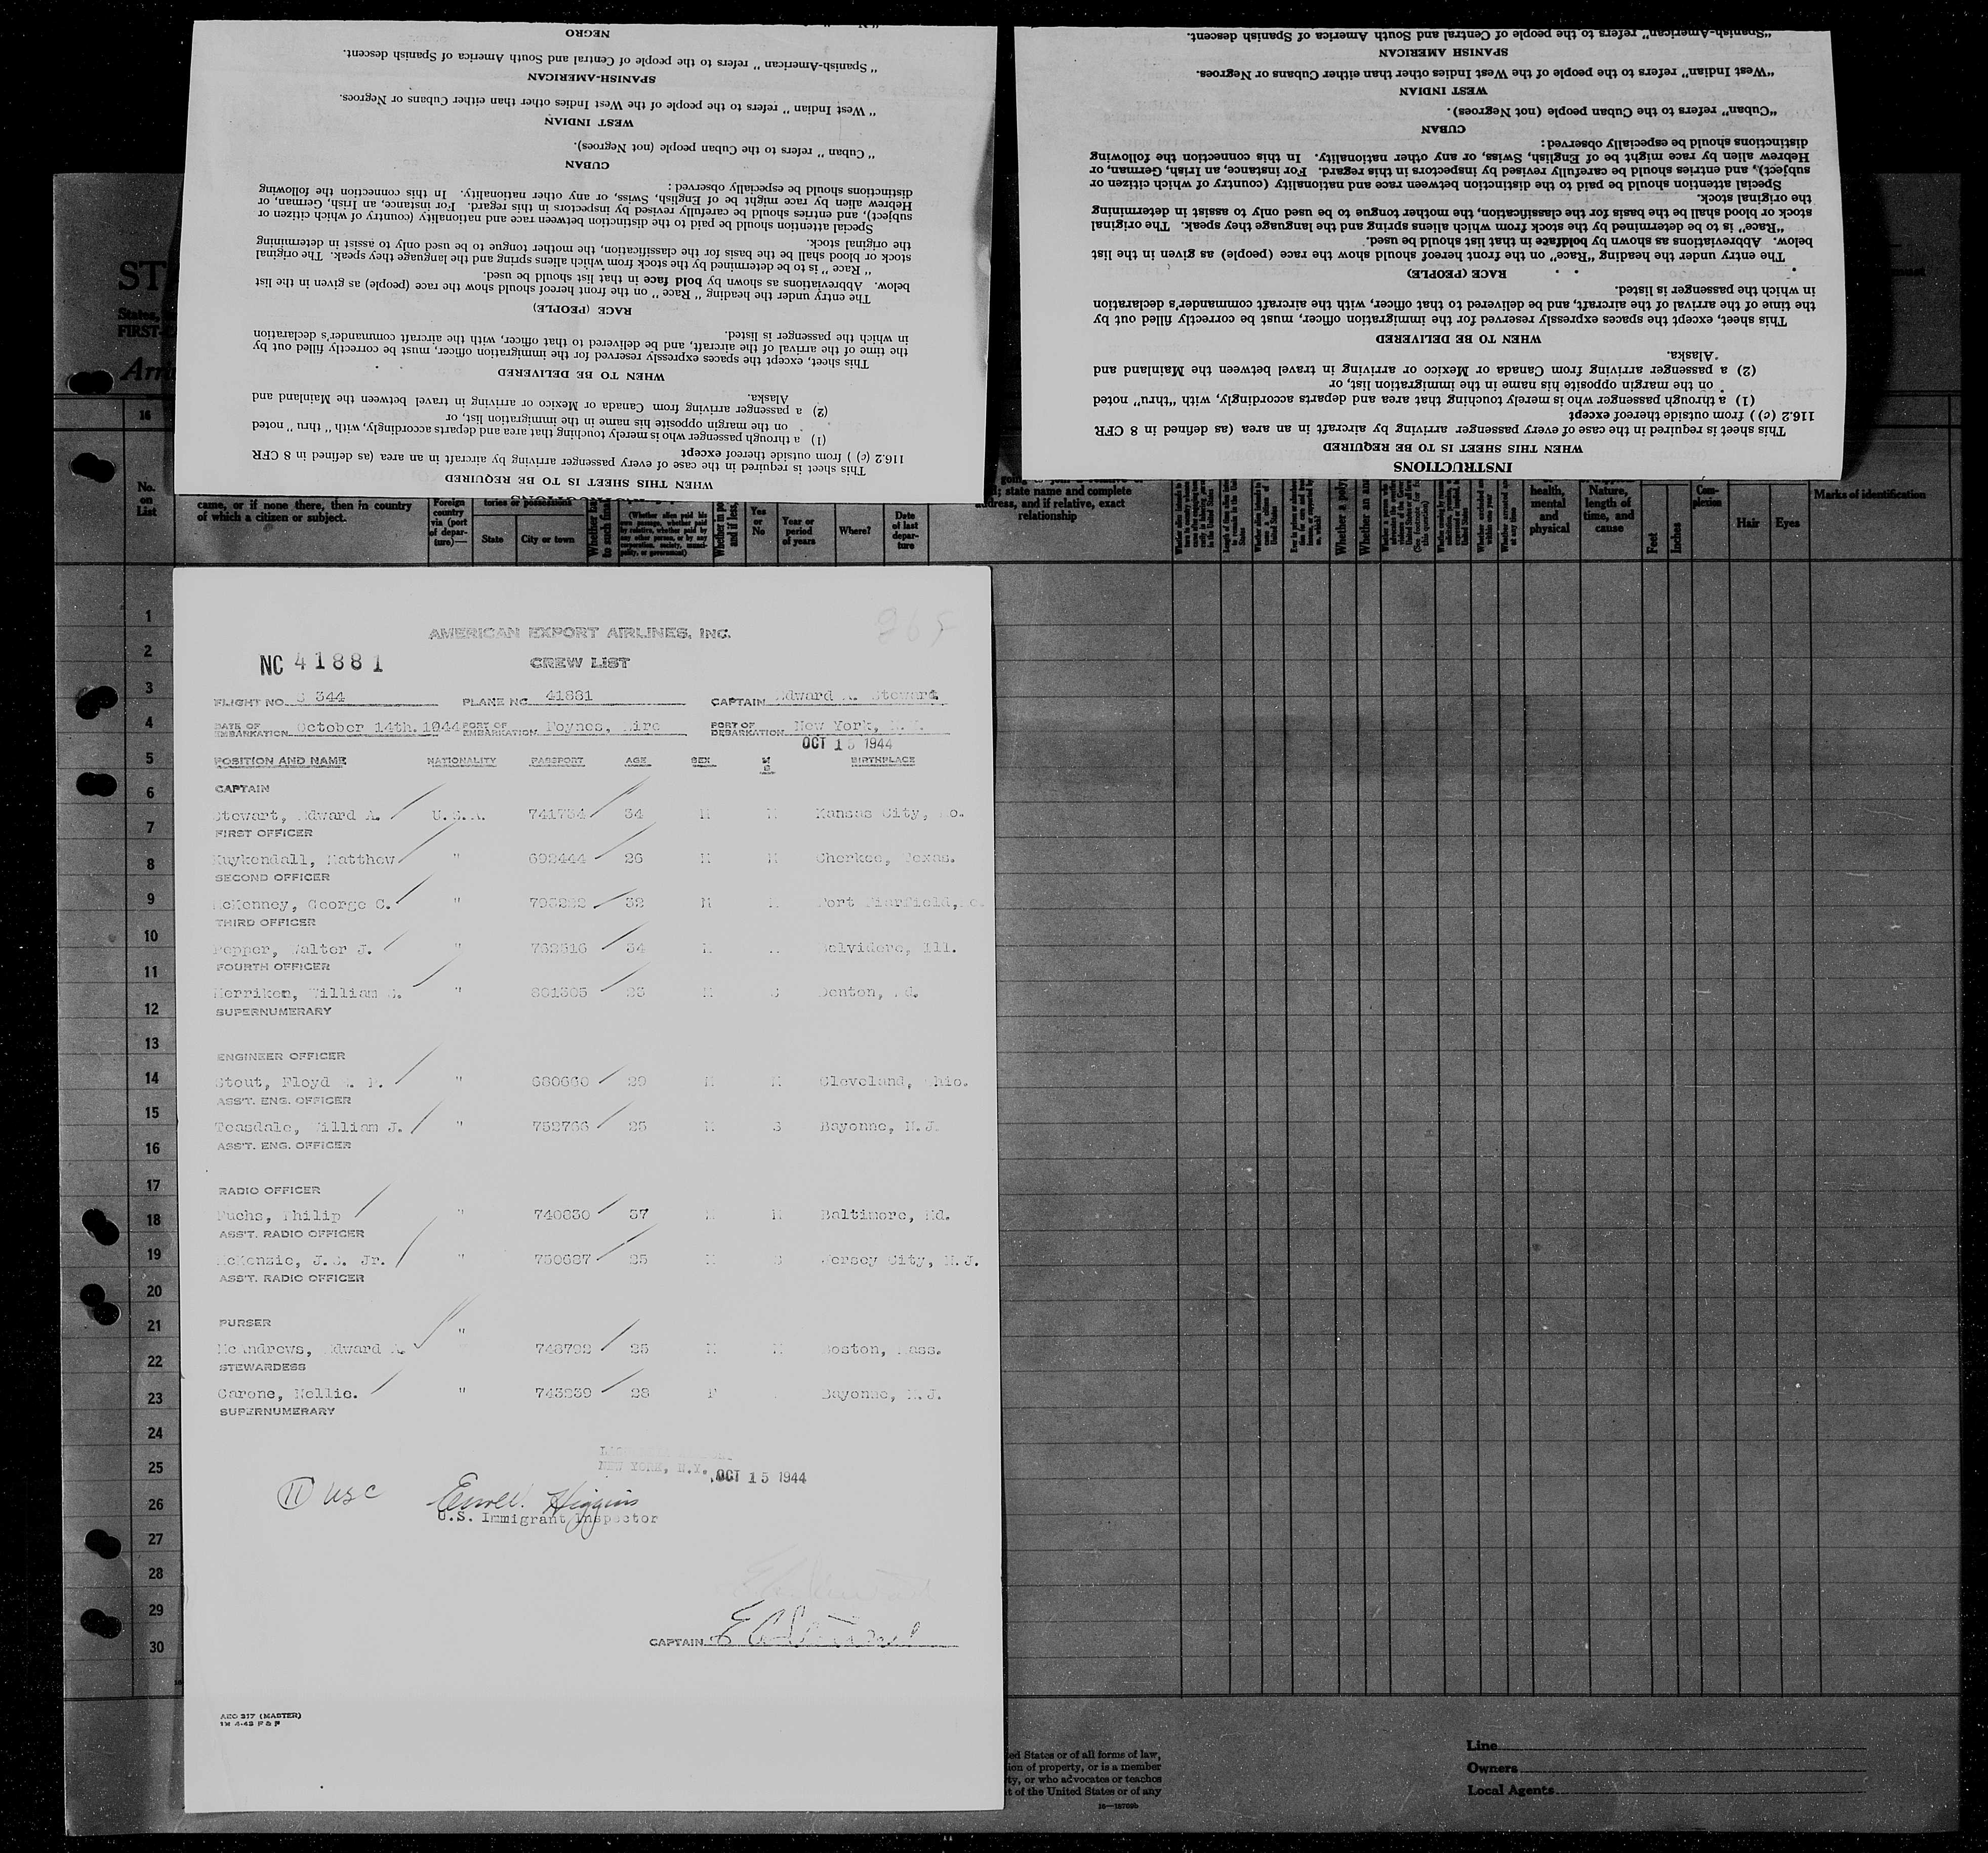 NEGRO
" Spanish-American " refers to the people of Central and South America of Spanish descent.
SPANISH-AMERICAN
" West Indian " refers to the people of the West Indies other than either Cubans or Negroes.
WEST INDIAN
" Cuban " refers to the Cuban people (not Negroes).
CUBAN
distinctions should be especially observed :
Hebrew alien by race might be of English, Swiss, or any other nationality. In this connection the following
subject), and entries should be carefully revised by inspectors in this regard. For instance, an Irish, German, or
Special attention should be paid to the distinction between race and nationality (country of which citizen or
the original stock.
stock or blood shall be the basis for the classification, the mother tongue to be used only to assist in determining
" Race " is to be determined by the stock from which aliens spring and the language they speak. The original
below. Abbreviations as shown by bold face in that list should be used.
The entry under the heading " Race " on the front hereof should show the race (people) as given in the list
RACE (PEOPLE)
in which the passenger is listed.
the time of the arrival of the aircraft, and be delivered to that officer, with the aircraft commander's declaration
This sheet, except the spaces expressly reserved for the immigration officer, must be correctly filled out by
WHEN TO BE DELIVERED
Alaska.
(2) a passenger arriving from Canada or Mexico or arriving in travel between the Mainland and
on the margin opposite his name in the immigration list, or
(1) a through passenger who is merely touching that area and departs accordingly, with " thru " noted
116.2 (c) ) from outside thereof except
This sheet is required in the case of every passenger arriving by aircraft in an area (as defined in 8 CFR
WHEN THIS SHEET IS TO BE REQUIRED
"Spanish-American" refers to the people of Central and South America of Spanish descent.
SPANISH AMERICAN
"West Indian" refers to the people of the West Indies other than either Cubans or Negroes.
WEST INDIAN
"Cuban" refers to the Cuban people (not Negroes).
CUBAN
distinctions should be especially observed:
Hebrew alien by race might be of English, Swiss, or any other nationality. In this connection the following
subject), and entries should be carefully revised by inspectors in this regard. For instance, an Irish, German, or
Special attention should be paid to the distinction between race and nationality (country of which citizen or
the original stock.
stock or blood shall be the basis for the classification, the mother tongue to be used only to assist in determining
"Race" is to be determined by the stock from which aliens spring and the language they speak. The original
below. Abbreviations as shown by boldface in that list should be used.
The entry under the heading "Race" on the front hereof should show the race (people) as given in the list
RACE (PEOPLE)
in which the passenger is listed.
the time of the arrival of the aircraft, and be delivered to that officer, with the aircraft commander's declaration
This sheet, except the spaces expressly reserved for the immigration officer, must be correctly filled out by
WHEN TO BE DELIVERED
Alaska.
(2) a passenger arriving from Canada or Mexico or arriving in travel between the Mainland and
on the margin opposite his name in the immigration list, or
(1) a through passenger who is merely touching that area and departs accordingly, with "thru" noted
116.2 (c) ) from outside thereof except
This sheet is required in the case of every passenger arriving by aircraft in an area (as defined in 8 CFR
WHEN THIS SHEET IS TO BE REQUIRED
INSTRUCTIONS
No. on List
came, or if none there, then in country of which a citizen or subject.
Foreign country via (port of departure)—
State
City or town
Yes or No
Year or period of years
Where?
Date of last departure
state name and complete address, and if relative, exact relationship
health, mental and physical
Nature, length of time, and cause
Feet
Inches
Complexion
Hair
Eyes
Marks of identification
265
AMERICAN EXPORT AIRLINES, INC.
NC 41881
CREW LIST
FLIGHT NO. 344 PLANE NO. 41881 CAPTAIN Edward A. Stewart
DATE OF EMBARKATION October 14th. 1944 PORT OF EMBARKATION Foynes, Eire PORT OF DEBARKATION New York, N.Y.
OCT 15 1944
POSITION AND NAME NATIONALITY PASSPORT AGE SEX M S BIRTHPLACE
CAPTAIN
Stewart, Edward A. U.S.A. 741754 34 M M Kansas City, Mo.
FIRST OFFICER
Kuykendall, Matthew " 692444 26 M M Cherkee, Texas.
SECOND OFFICER
McKenney, George C. " 32 M M Fort Fierfield,
THIRD OFFICER
Pepper, Walter J. " 762516 34 M Belvidere, Ill.
FOURTH OFFICER
Merriken, William " 801305 23 M S Denton, Md.
SUPERNUMERARY
ENGINEER OFFICER
Stout, Floyd " 680660 29 M M Cleveland, Ohio.
ASS'T. ENG. OFFICER
Teasdale, William J. " 752766 25 M S Bayonne, N.J.
ASS'T. ENG. OFFICER
RADIO OFFICER
Fuchs, Philip " 740830 37 M M Baltimore, Md.
ASS'T. RADIO OFFICER
McKenzie, J.S. Jr. " 750687 25 M S Jersey City, N.J.
ASS'T. RADIO OFFICER
PURSER
McAndrews, Edward A. " 748792 25 M M Boston, Mass.
STEWARDESS
Carone, Nellie. " 743239 26 F Bayonne, N.J.
SUPERNUMERARY
NEW YORK, N.Y. OCT 15 1944
11 USC
Higgins
U.S. Immigrant Inspector
CAPTAIN E A Stewart
AEO 317 (MASTER)
1M 4-43 P & P
1
2
3
4
5
6
7
8
9
10
11
12
13
14
15
16
17
18
19
20
21
22
23
24
25
26
27
28
29
30
ed States or of all forms of law,
ion of property, or is a member
ty, or who advocates or teaches
t of the United States or of any
16—18709b
Line
Owners
Local Agents